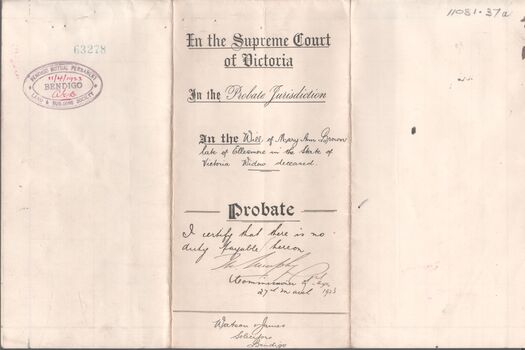 11031.37a
63278
BENDIGO MUTUAL PERMANENT
11/4/1923
BENDIGO
LAND & BUILDING SOCIETY
In the Supreme Court
of Victoria
In the Probate Jurisdiction
In the Will of Mary Ann Brown
late of Ellesmere in the State of
Victoria Widow deceased.
Probate
I certify that there is no
duty payable hereon
Commissioner of Taxes
27th March 1923
Watson & James
Solicitors
Bendigo